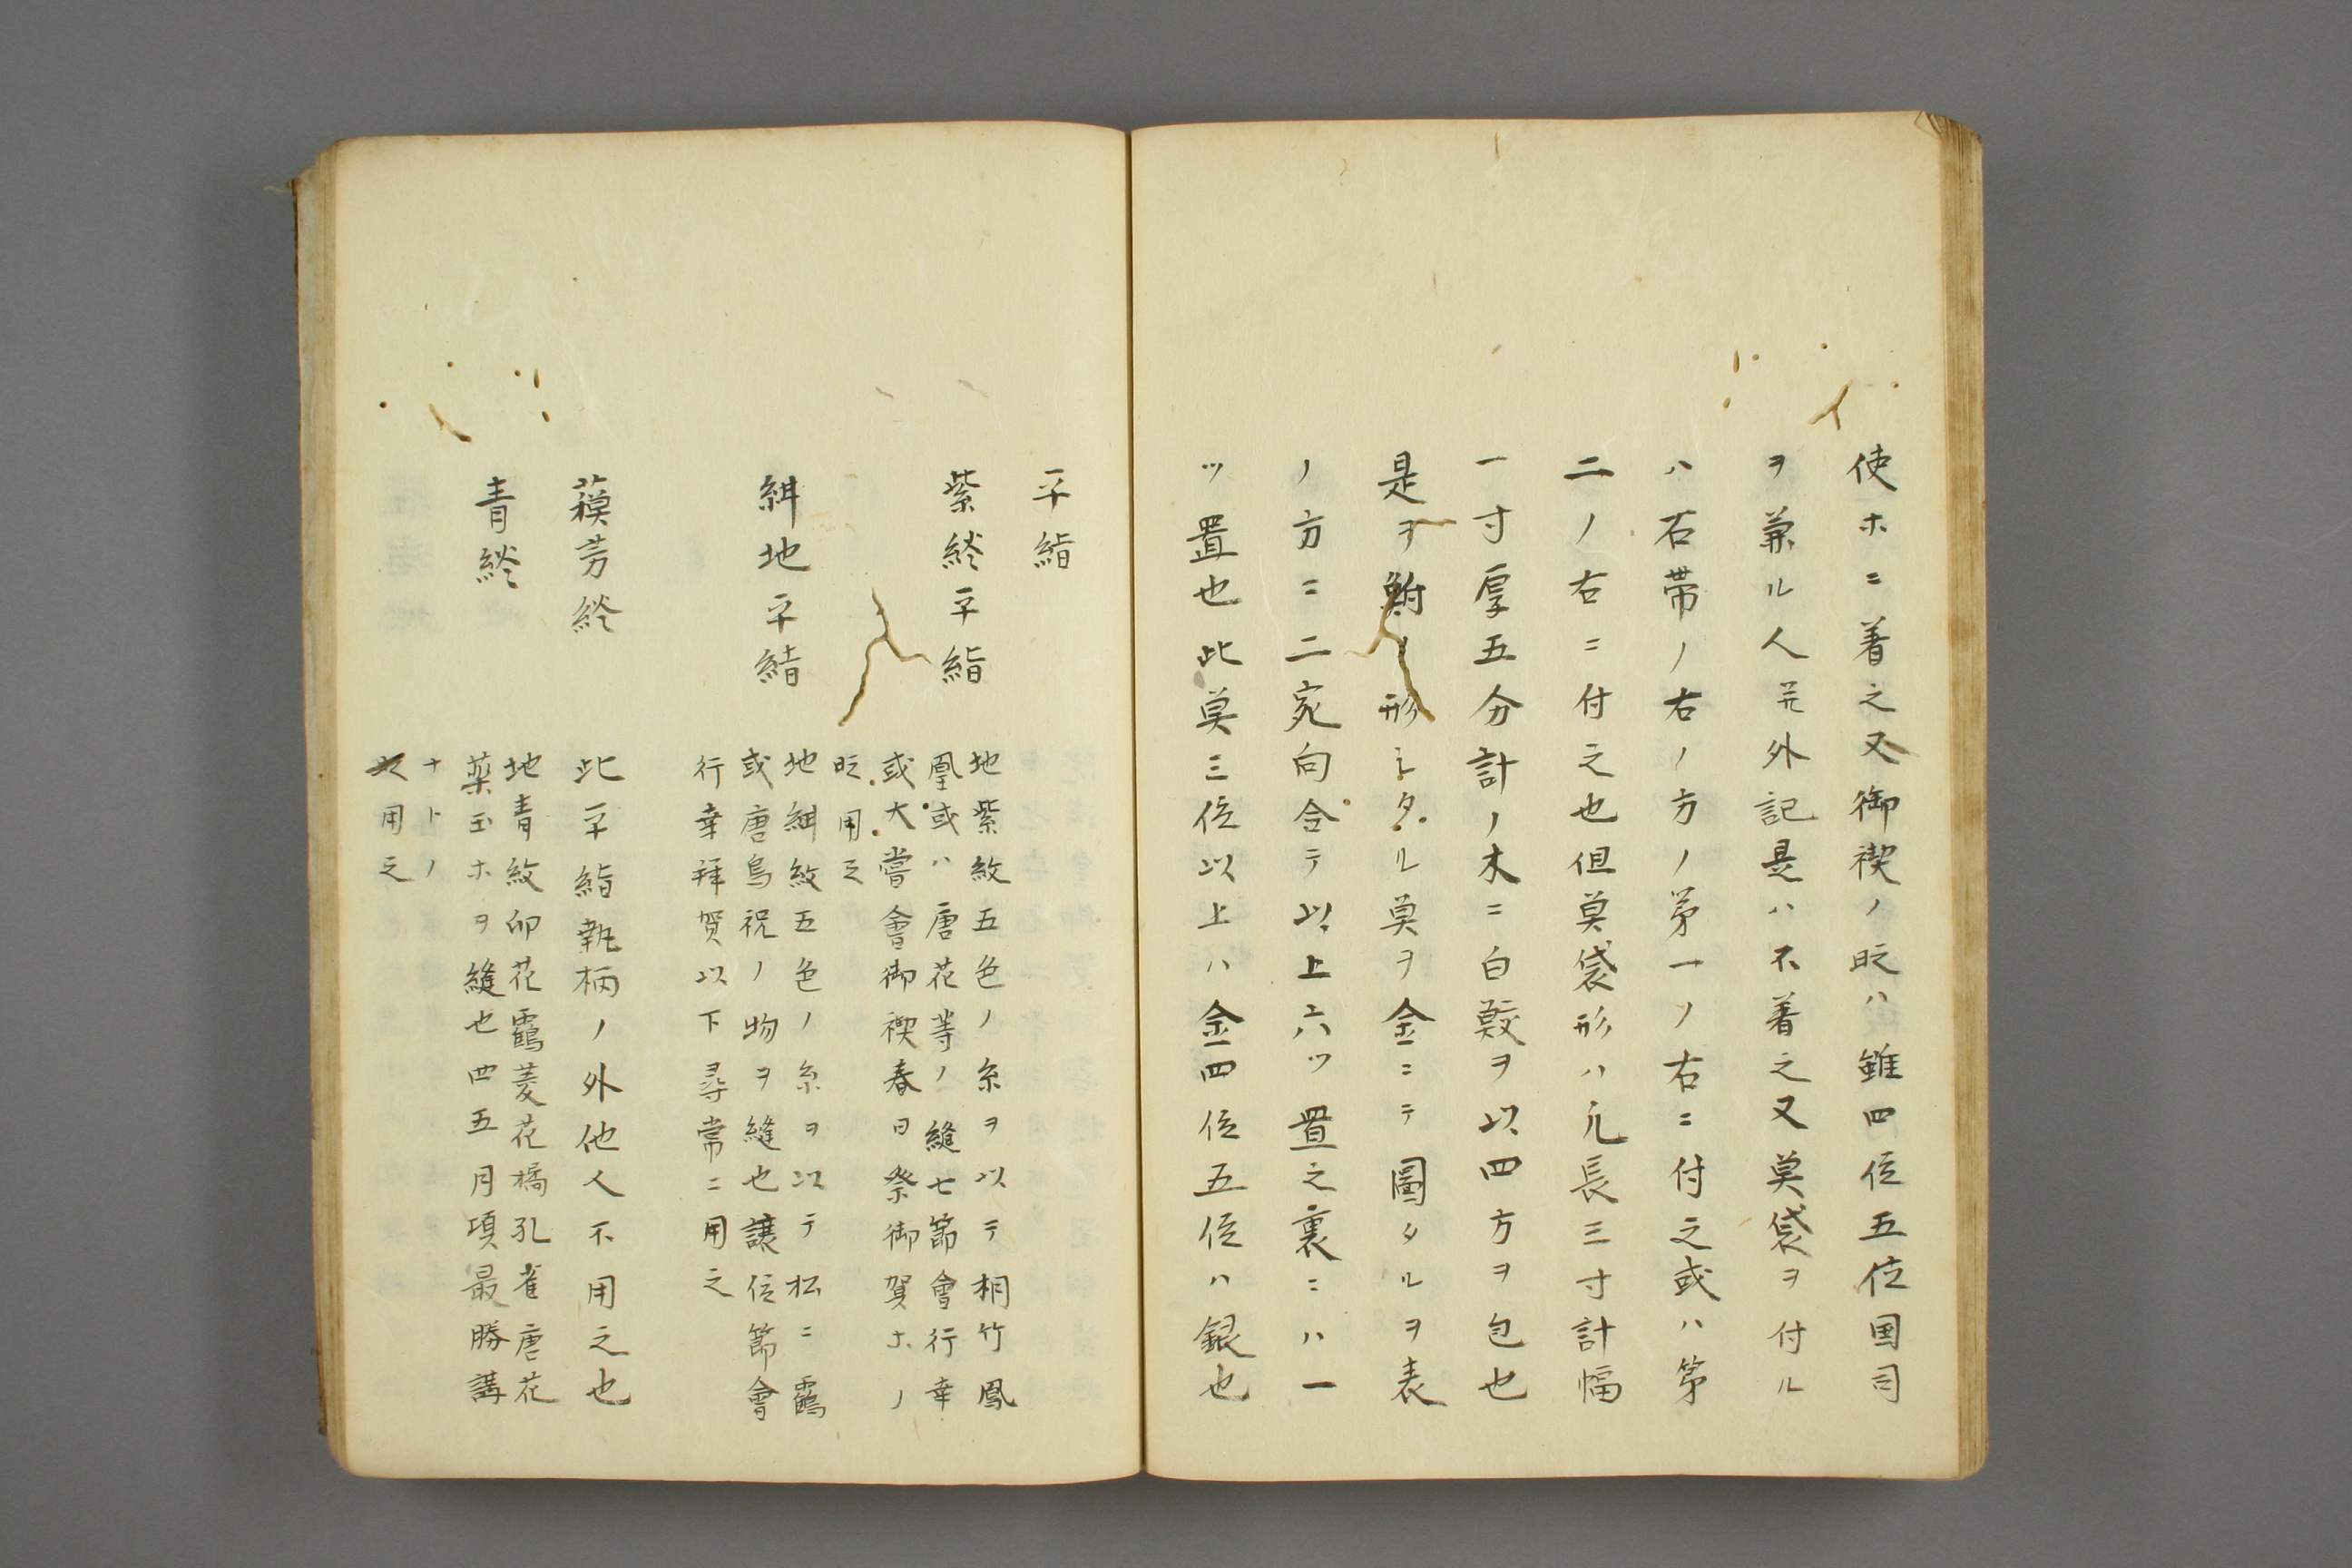 使ホニ着之又御禊ノ旼ハ雖四位五位国司
ヲ兼ル人幷外記是ハ不着之又莫袋ヲ付ル
ハ石帯ノ右ノ方ノ第一ノ右ニ付之或ハ第
二ノ右ニ付之也但莫袋形ハ凢長三寸計幅
一寸厚五分計ノ木ニ白鮫ヲ以四方ヲ包也
是ヲ鮒ノ形シタル莫ヲ金ニテ圖タルヲ表
ノ方ニ二宛向合テ以上六ツ置之裏ニハ一
ツ置也此莫三位以上ハ金四位五位ハ銀也
平緒
紫綟平緒
地紫紋五色ノ糸ヲ以テ桐竹鳳
凰或ハ唐花等ノ縫七節會行幸
或大嘗會御禊春日祭御賀ホノ
旼用之
紺地平緒
地紺紋五色ノ糸ヲ以テ松ニ靏
或唐鳥祝ノ物ヲ縫也譲位節會
行幸拜賀以下尋常ニ用之
蘓芳綟
此平緒執柄ノ外他人不用之也
青綟
地青紋卯花靏菱花橘孔雀唐花
薬玉ホヲ縫也四五月項最勝講
ナトノ
旼用之